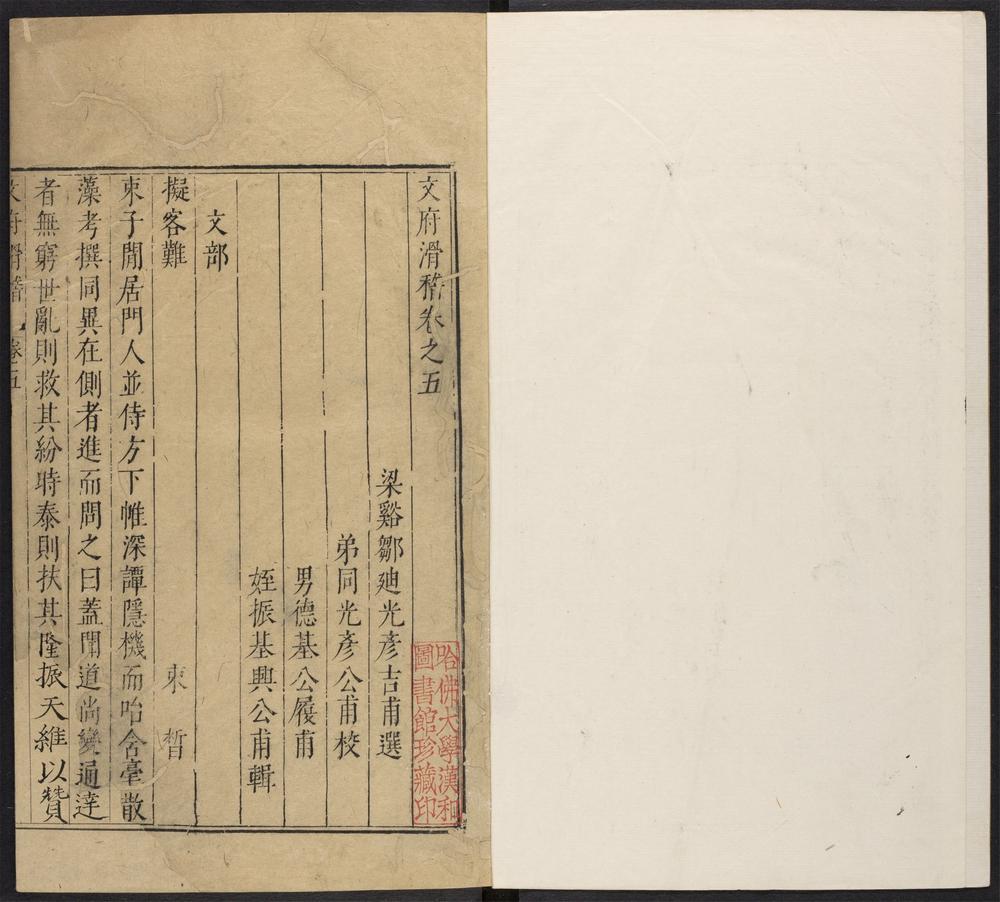 文府滑稽卷之五
梁谿鄒迪光彥吉甫選
弟同光彥公甫校
男德基公履甫
姪振基興公甫輯
文部
擬客難 束皙
束子閒居門人並侍方下帷深譚隱機而咍含毫散
藻考撰同異在側者進而問之曰蓋聞道尚變通達
者無窮世亂則救其紛時泰則扶其隆振天維以贊
文府滑稽 卷五
哈佛大學漢和
圖書館珍藏印